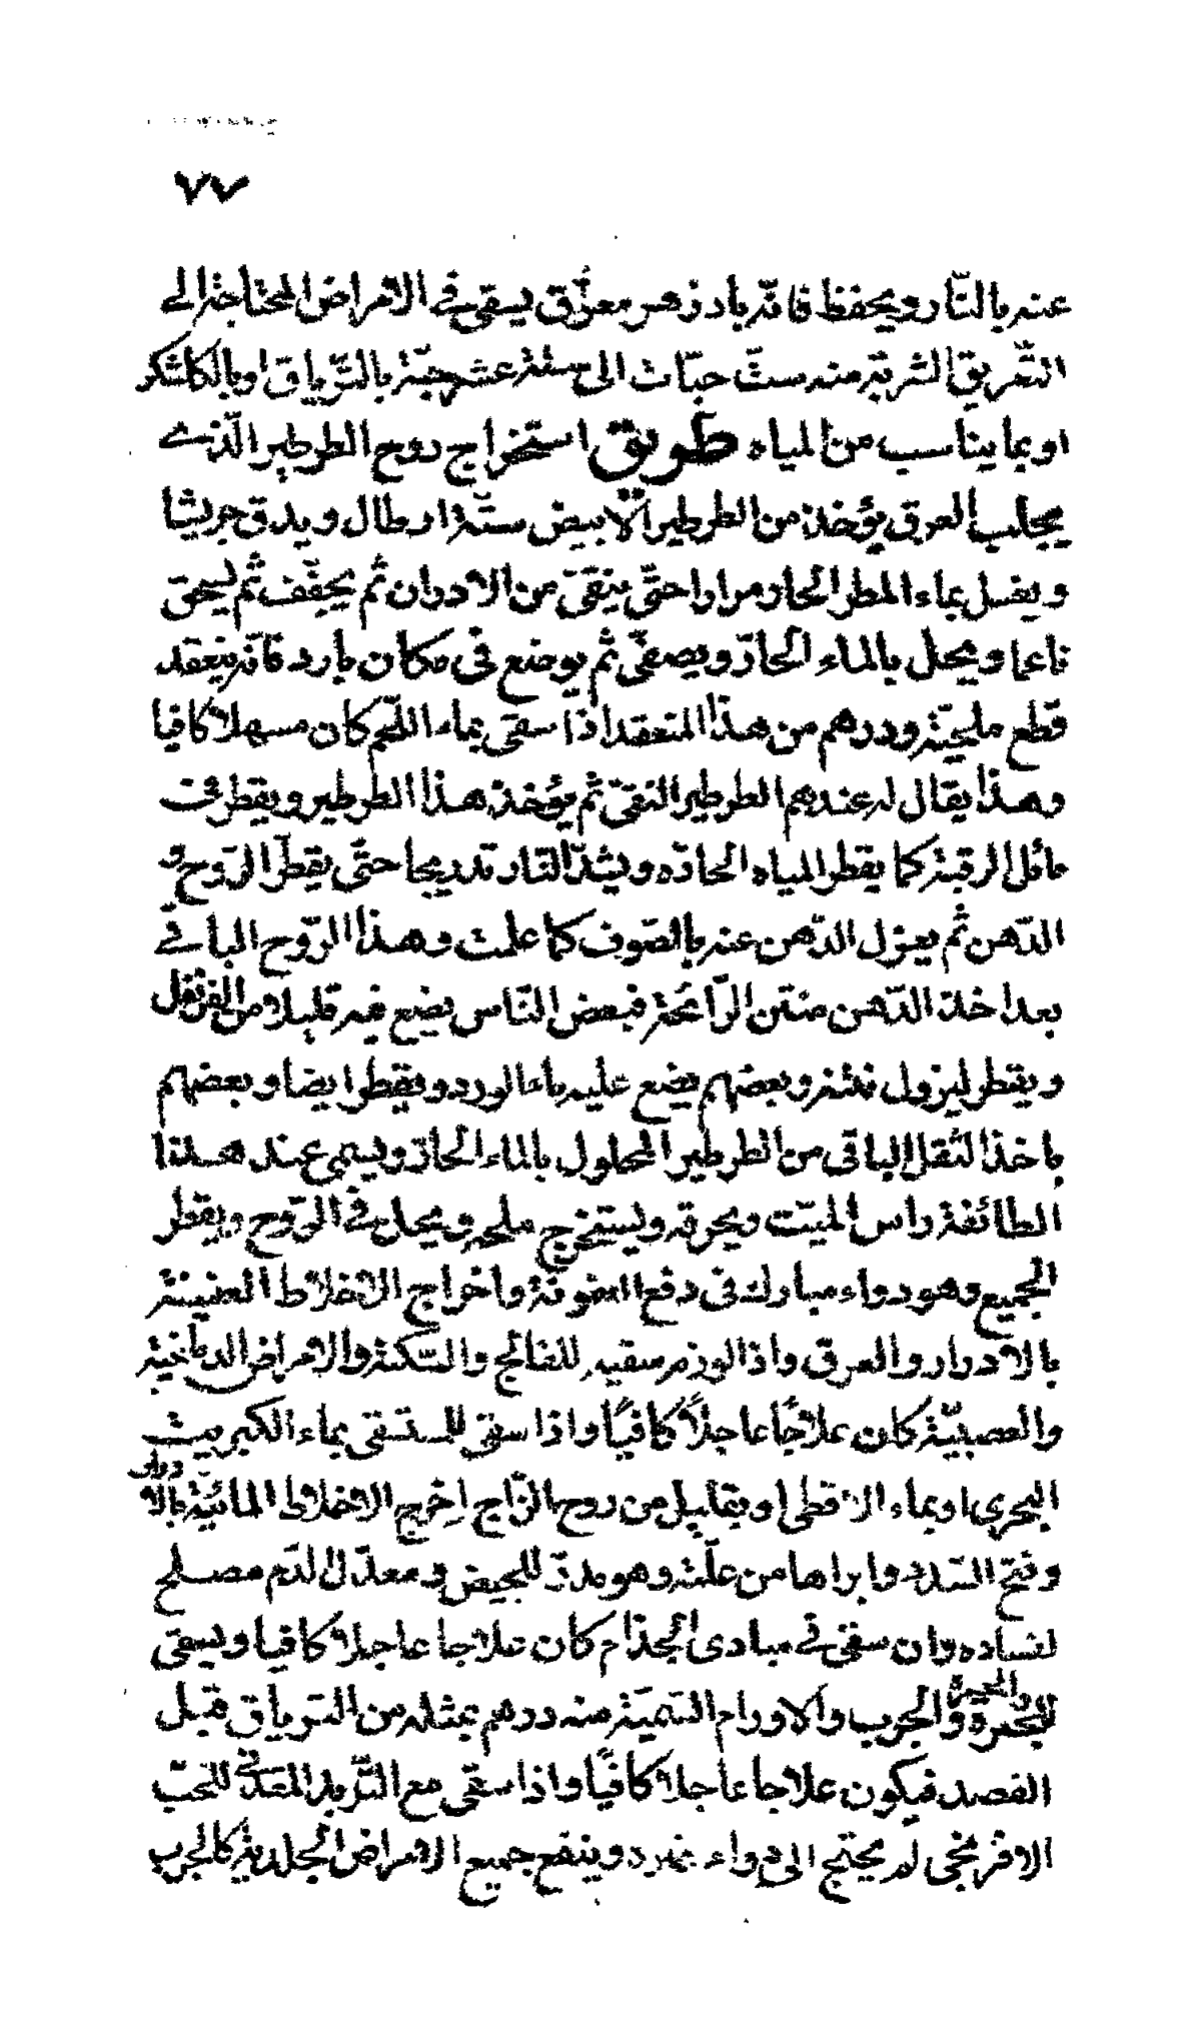 ٧٧
عنه بالنّار ويحفظ فانّه بادزهر معرّق يسقى فى الامراض المحتاجة الى
التّعريق الشربة منه ستّ حبّات الى ستة عشر حبّة بالتّرياق او بالكلشكر
او بما يناسب من المياه طريق استخراج روح الطرطير الّذى
يجلب العرق يؤخذ من الطرطير الابيض ستّة ارطال ويدق جريشا
ويغسل بماء المطر الحار مرارا حتّى ينقى من الادران ثم يجفّف ثم يسحق
ناعما ويحل بالماء الحارّ ويصفّى ثم يوضع فى مكان بارد فانّه ينعقد
قطع مليحيّة ودرهم من هذا المنعقد اذا سقى بماء اللّحم كان مسهلا كافيا
وهذا يقال له عندهم الطرطير النقىّ ثم يؤخذ هذا الطرطير ويقطر فى
مائل الرقبة كما يقطر المياه الحادّه ويشدّ النّار تدريجا حتّى يقطر الرّوح و
الدّهن ثم يعزل الدّهن عنه بالصّوف كما علمت وهذا الرّوح الباقى
بعد اخذ الدّهن منتن الرّائحة فبعض النّاس يضع فيه قليلا من القرنفل
ويقطر ليزول نتنه وبعضهم يضع عليه ماء الورد ويقطر ايضا وبعضهم
ياخذ الثفل الباقى من الطرطير المحلول بالماء الحارّ ويسمى عند هذا
الطائفة راس الميّت ويحرقه ويستخرج ملحه ويحل فى الرّوح ويقطر
الجميع وهو دواء مبارك فى دفع العفونة واخراج الاخلاط العفينة
بالادرار والعرق واذا لوزم سقيه للفالج والسّكتة والامراض الدماغية
والعصبيّة كان علاجًا عاجلاً كافيًا واذا سقى للمستسقى بماء الكبريت
البحرى او بماء الاقطى او بقليل من روح الزّاج اخرج الاخلاط المائيّة بالادرار
وفتح السّدد وابراها من علّته وهو مدرّ للحيض ومعدّل الدّم مصلح
لفساده وان سقى فى مبادى الجذام كان علاجا عاجلا كافيا ويسقى
للحمرة والجرب والاورام السّميّة منه درهم بمثله من التّرياق قبل
الفصد فيكون علاجا عاجلا كافيًا واذا سقى مع التّربد المعدنى للحبّ
الافرنجى لم يحتج الى دواء بعده وينفع جميع الامراض الجلدية كالجرب